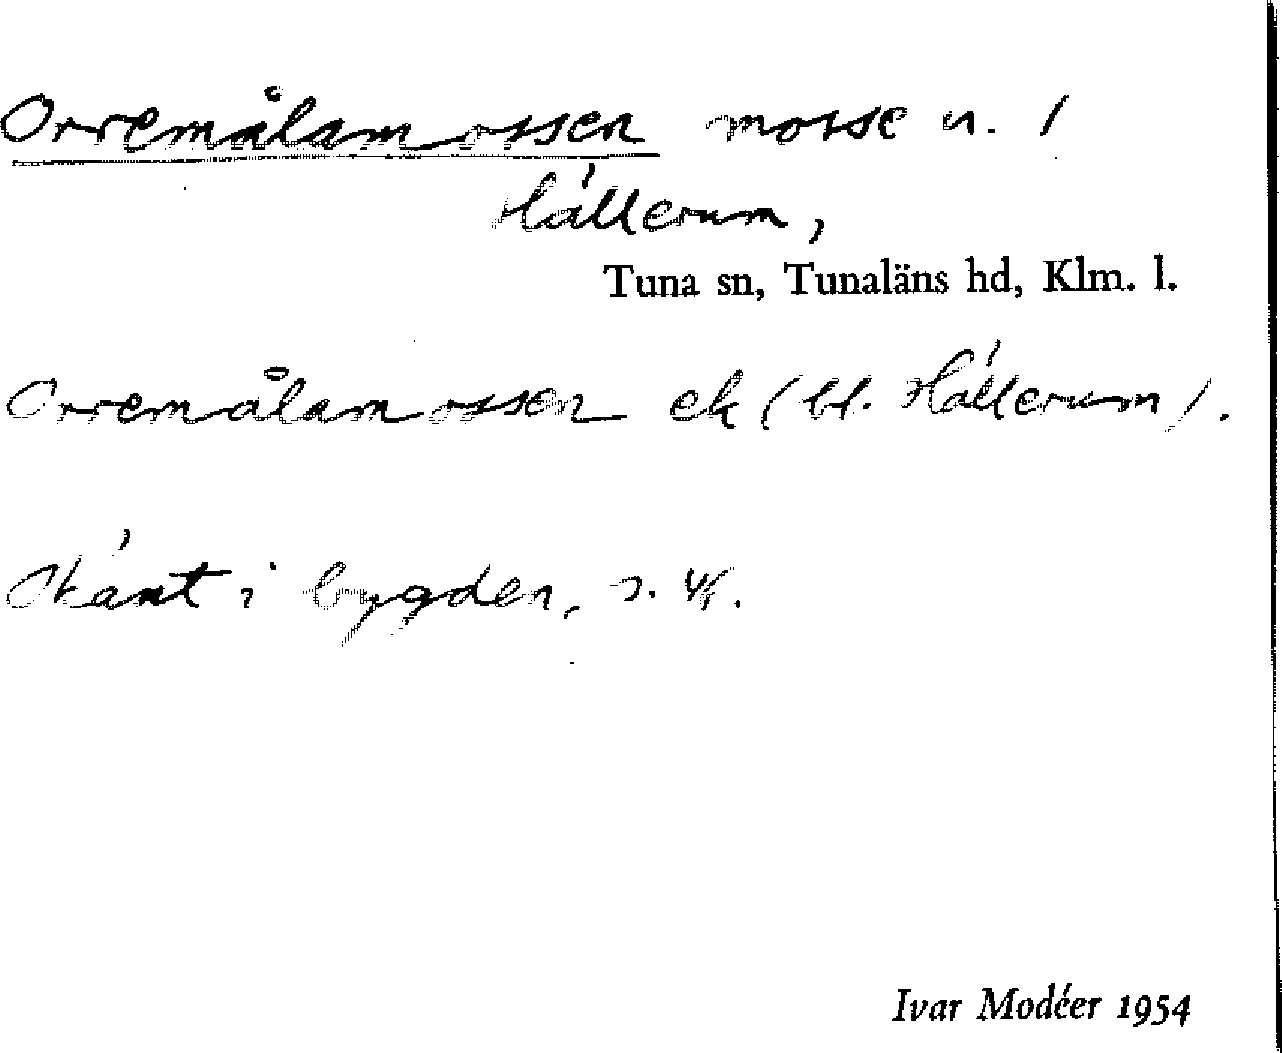 Orremålamossen mosse n. /
Hällerum,
Tuna sn, Tunaläns hd, Klm. l.
Orremålamossen ek (bl. Hällerum).
Okänt i bygden,
Ivar Modéer 1954